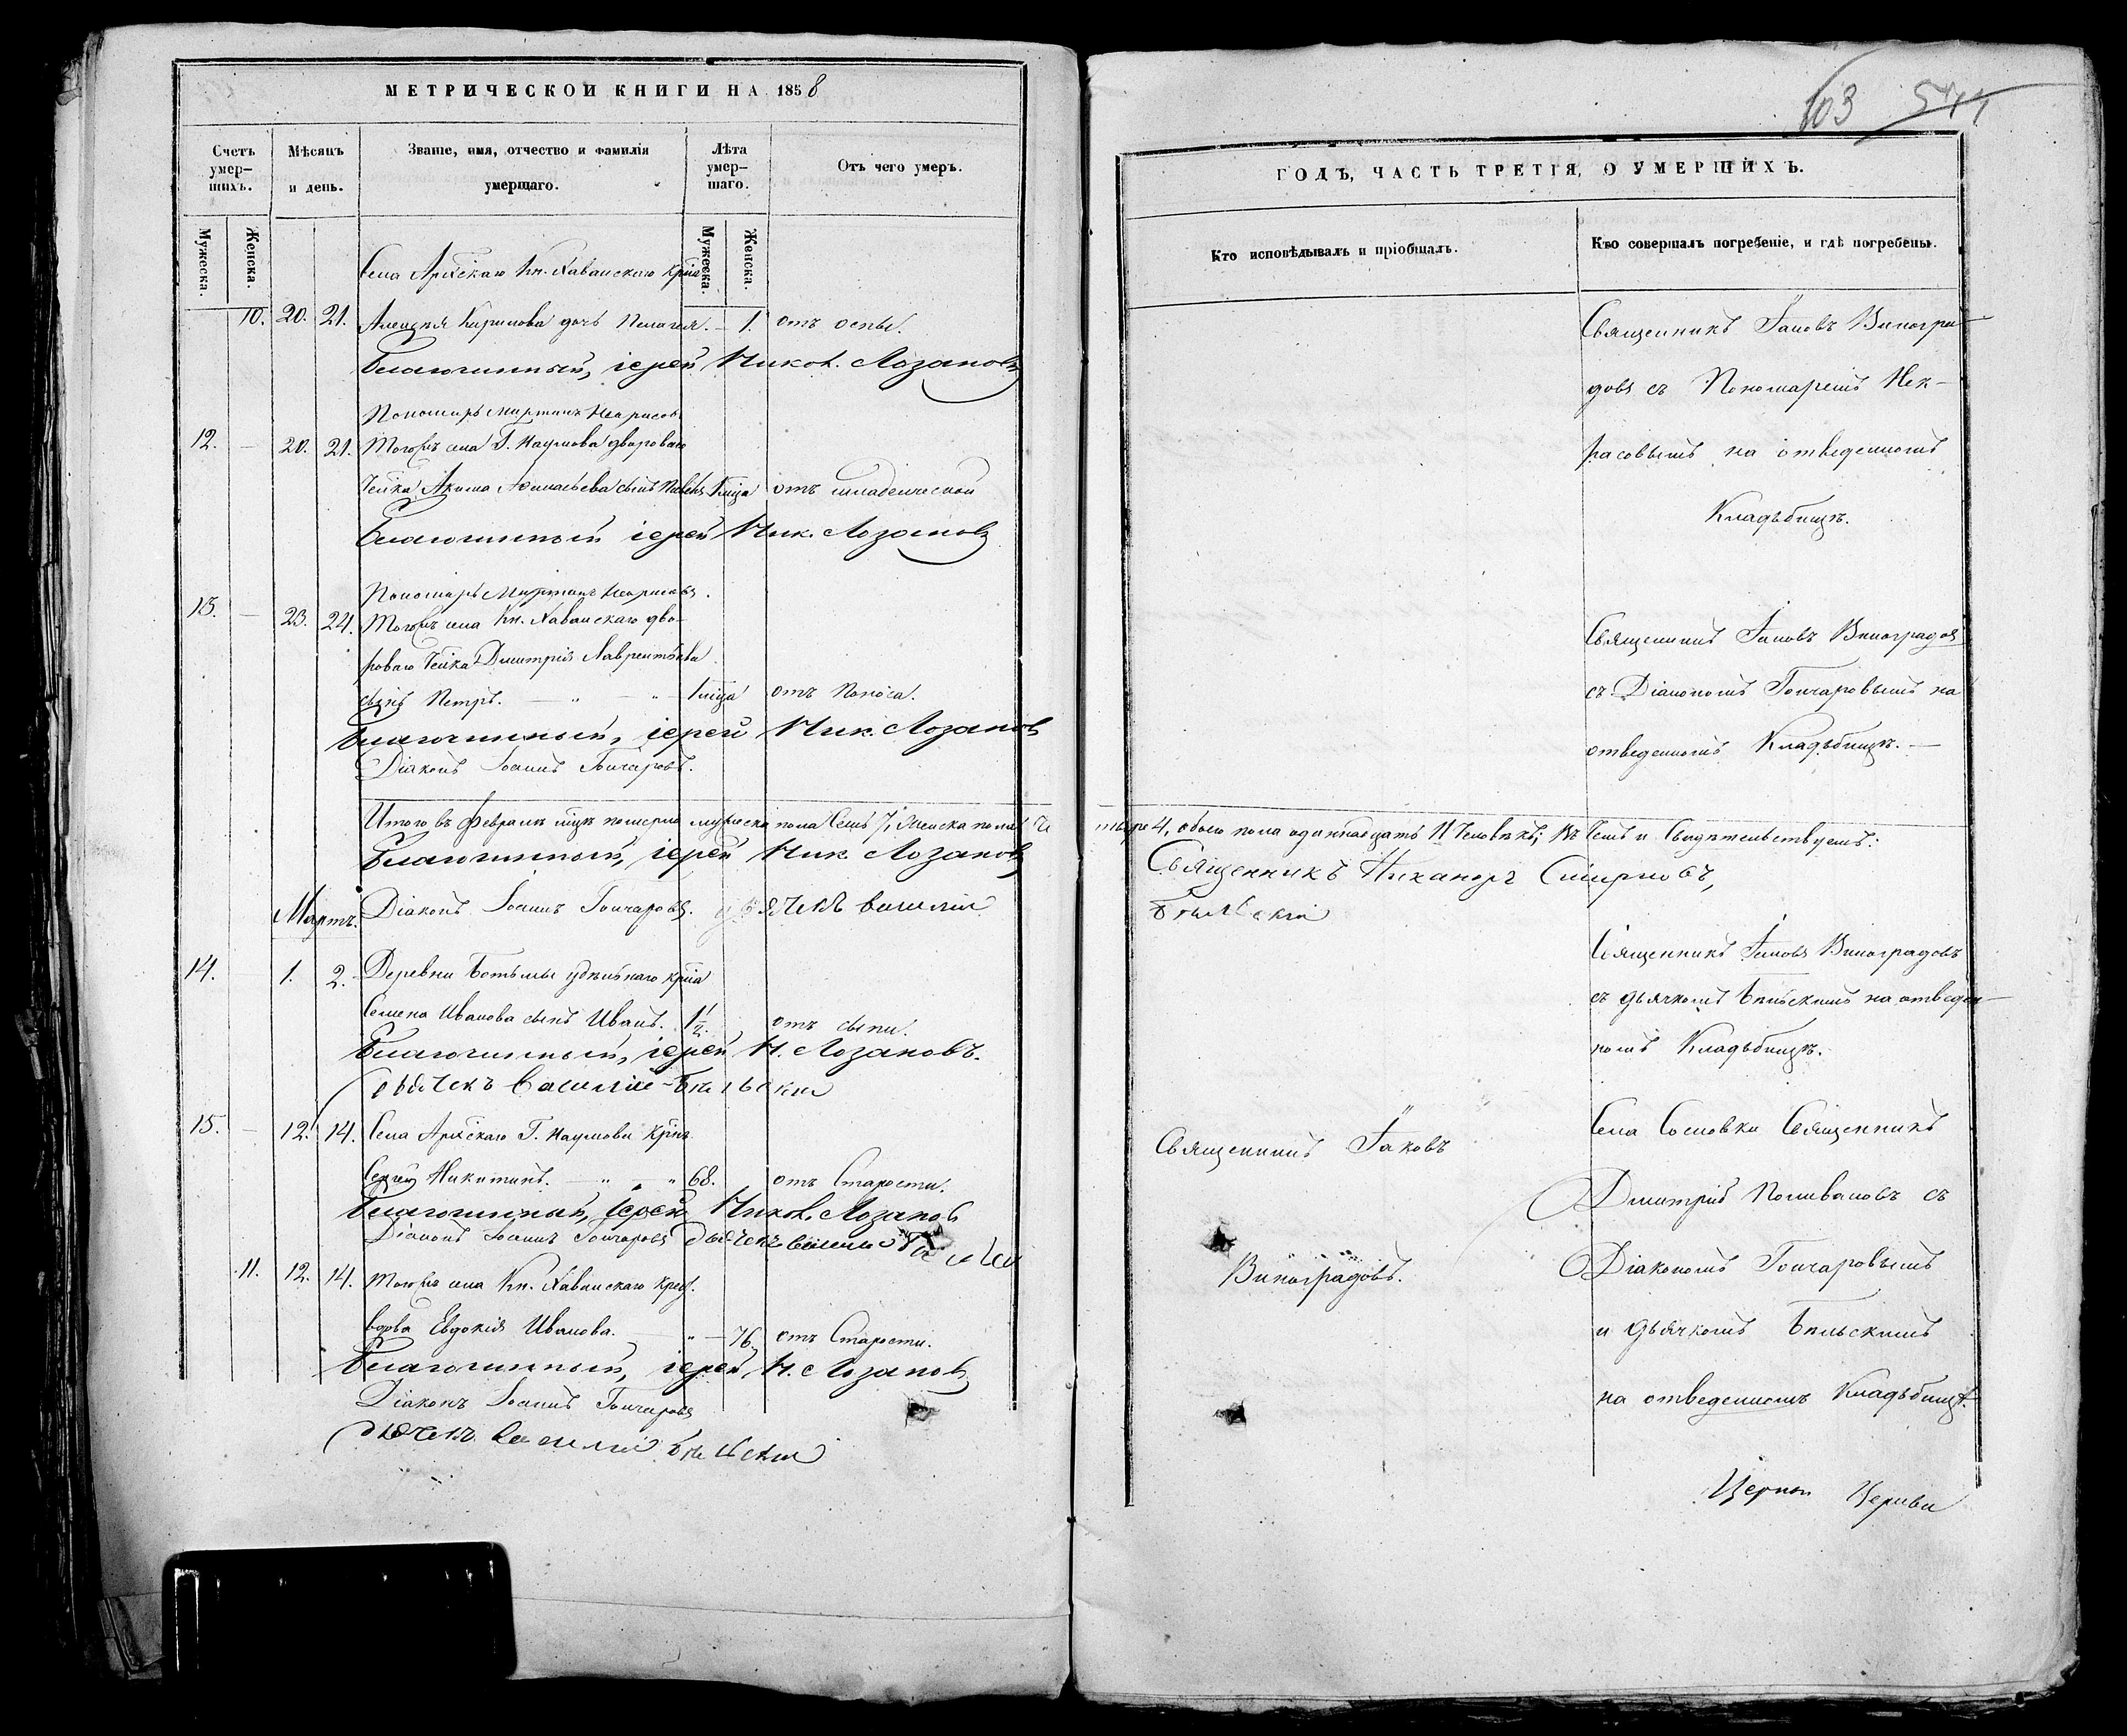 МЕТРИЧЕСКОЙ КНИГИ НА 1858
Счетъ умер-шихъ.
Мѣсяцъ и день.
Званіе, имя, отчество и фамилія умершаго.
Лѣта умер-шаго.
Отъ чего умеръ.
Мужеска.
Женска.
Мужеска.
Женска.
Села Кн. Хованскаго крна
10. 20. 21. Алексѣя Кирилова дочь Пелагея. – 1. отъ оспы.
Благочинный, іерей Никол. Лозановъ
Пономарь Мартинъ Некрасовъ
12. – 20. 21. Тогожъ села Г. Наумова двороваго
челка Акима сынъ отъ младенческой
Благочинный іерей Ник. Лозановъ
Пономарь Мартинъ Некрасовъ.
13. – 23. 24. Тогожъ села Кн. Хованскаго дво-
роваго челка Дмитрія Лаврентьева
сынъ Петръ. – „ – „ 1 мца отъ Поноса.
Благочинный, іерей Ник. Лозановъ
Діаконъ Іоаннъ Гончаровъ.
Итого въ Февралѣ мцѣ померло мужеска пола Семь 7, Женска пола Че
Благочинный, іерей Ник Лозановъ
Мартъ.
Діаконъ Іоаннъ Гончаровъ. дьячекъ василій
14. 1. 2. Деревни Ботьмы удѣльнаго крна
Семена Иванова сынъ Иванъ. 1 1/2. отъ сыпи.
Благочинный, іерей Н. Лозановъ.
дьячекъ Василій Бѣльскій
15. – 12. 14. Села Г. Наумова крнъ
Сергѣй Никитинъ. – „ „ „ 68. отъ Старости.
Благочинный, іерей Никол. Лозановъ
Діаконъ Іоаннъ Гончаровъ дьячекъ василій
11. 12. 14. Тогожъ села Кн. Хованскаго крес.
вдова Евдокія Иванова. – „ – 76. отъ Старости.
Благочинный, іерей Н. Лозановъ
Діаконъ Іоаннъ Гончаровъ
дьячекъ василій Бѣльскій
103 
ГОДЪ, ЧАСТЬ ТРЕТІЯ, О УМЕРШИХЪ.
Кто исповѣдывалъ и пріобщалъ.
Кто совершалъ погребеніе, и гдѣ погребены.
Священникъ Іаковъ Виногра-
довъ съ Пономаремъ Нек-
расовымъ на отведенномъ
Кладьбищѣ.
Священникъ Іаковъ Виноградовъ
съ Діакономъ Гончаровымъ на
отведенномъ Кладьбищѣ. –
тыре 4, обоего пола одиннадцать 11 Человѣкъ; Въ чемъ и Свидѣтельствуемъ:
Священникъ Никаноръ Смирновъ,
Бѣльскій
Священникъ Іаковъ Виноградовъ
съ дьячкомъ Бѣльскимъ на отведен-
номъ Кладьбищѣ.
Священникъ Іаковъ
Виноградовъ.
Села Сосновки Священникъ
Дмитрій Поливановъ съ
Діакономъ Гончаровымъ
и дьячкомъ Бѣльскимъ
на отведенномъ Кладьбищѣ.
Церкви